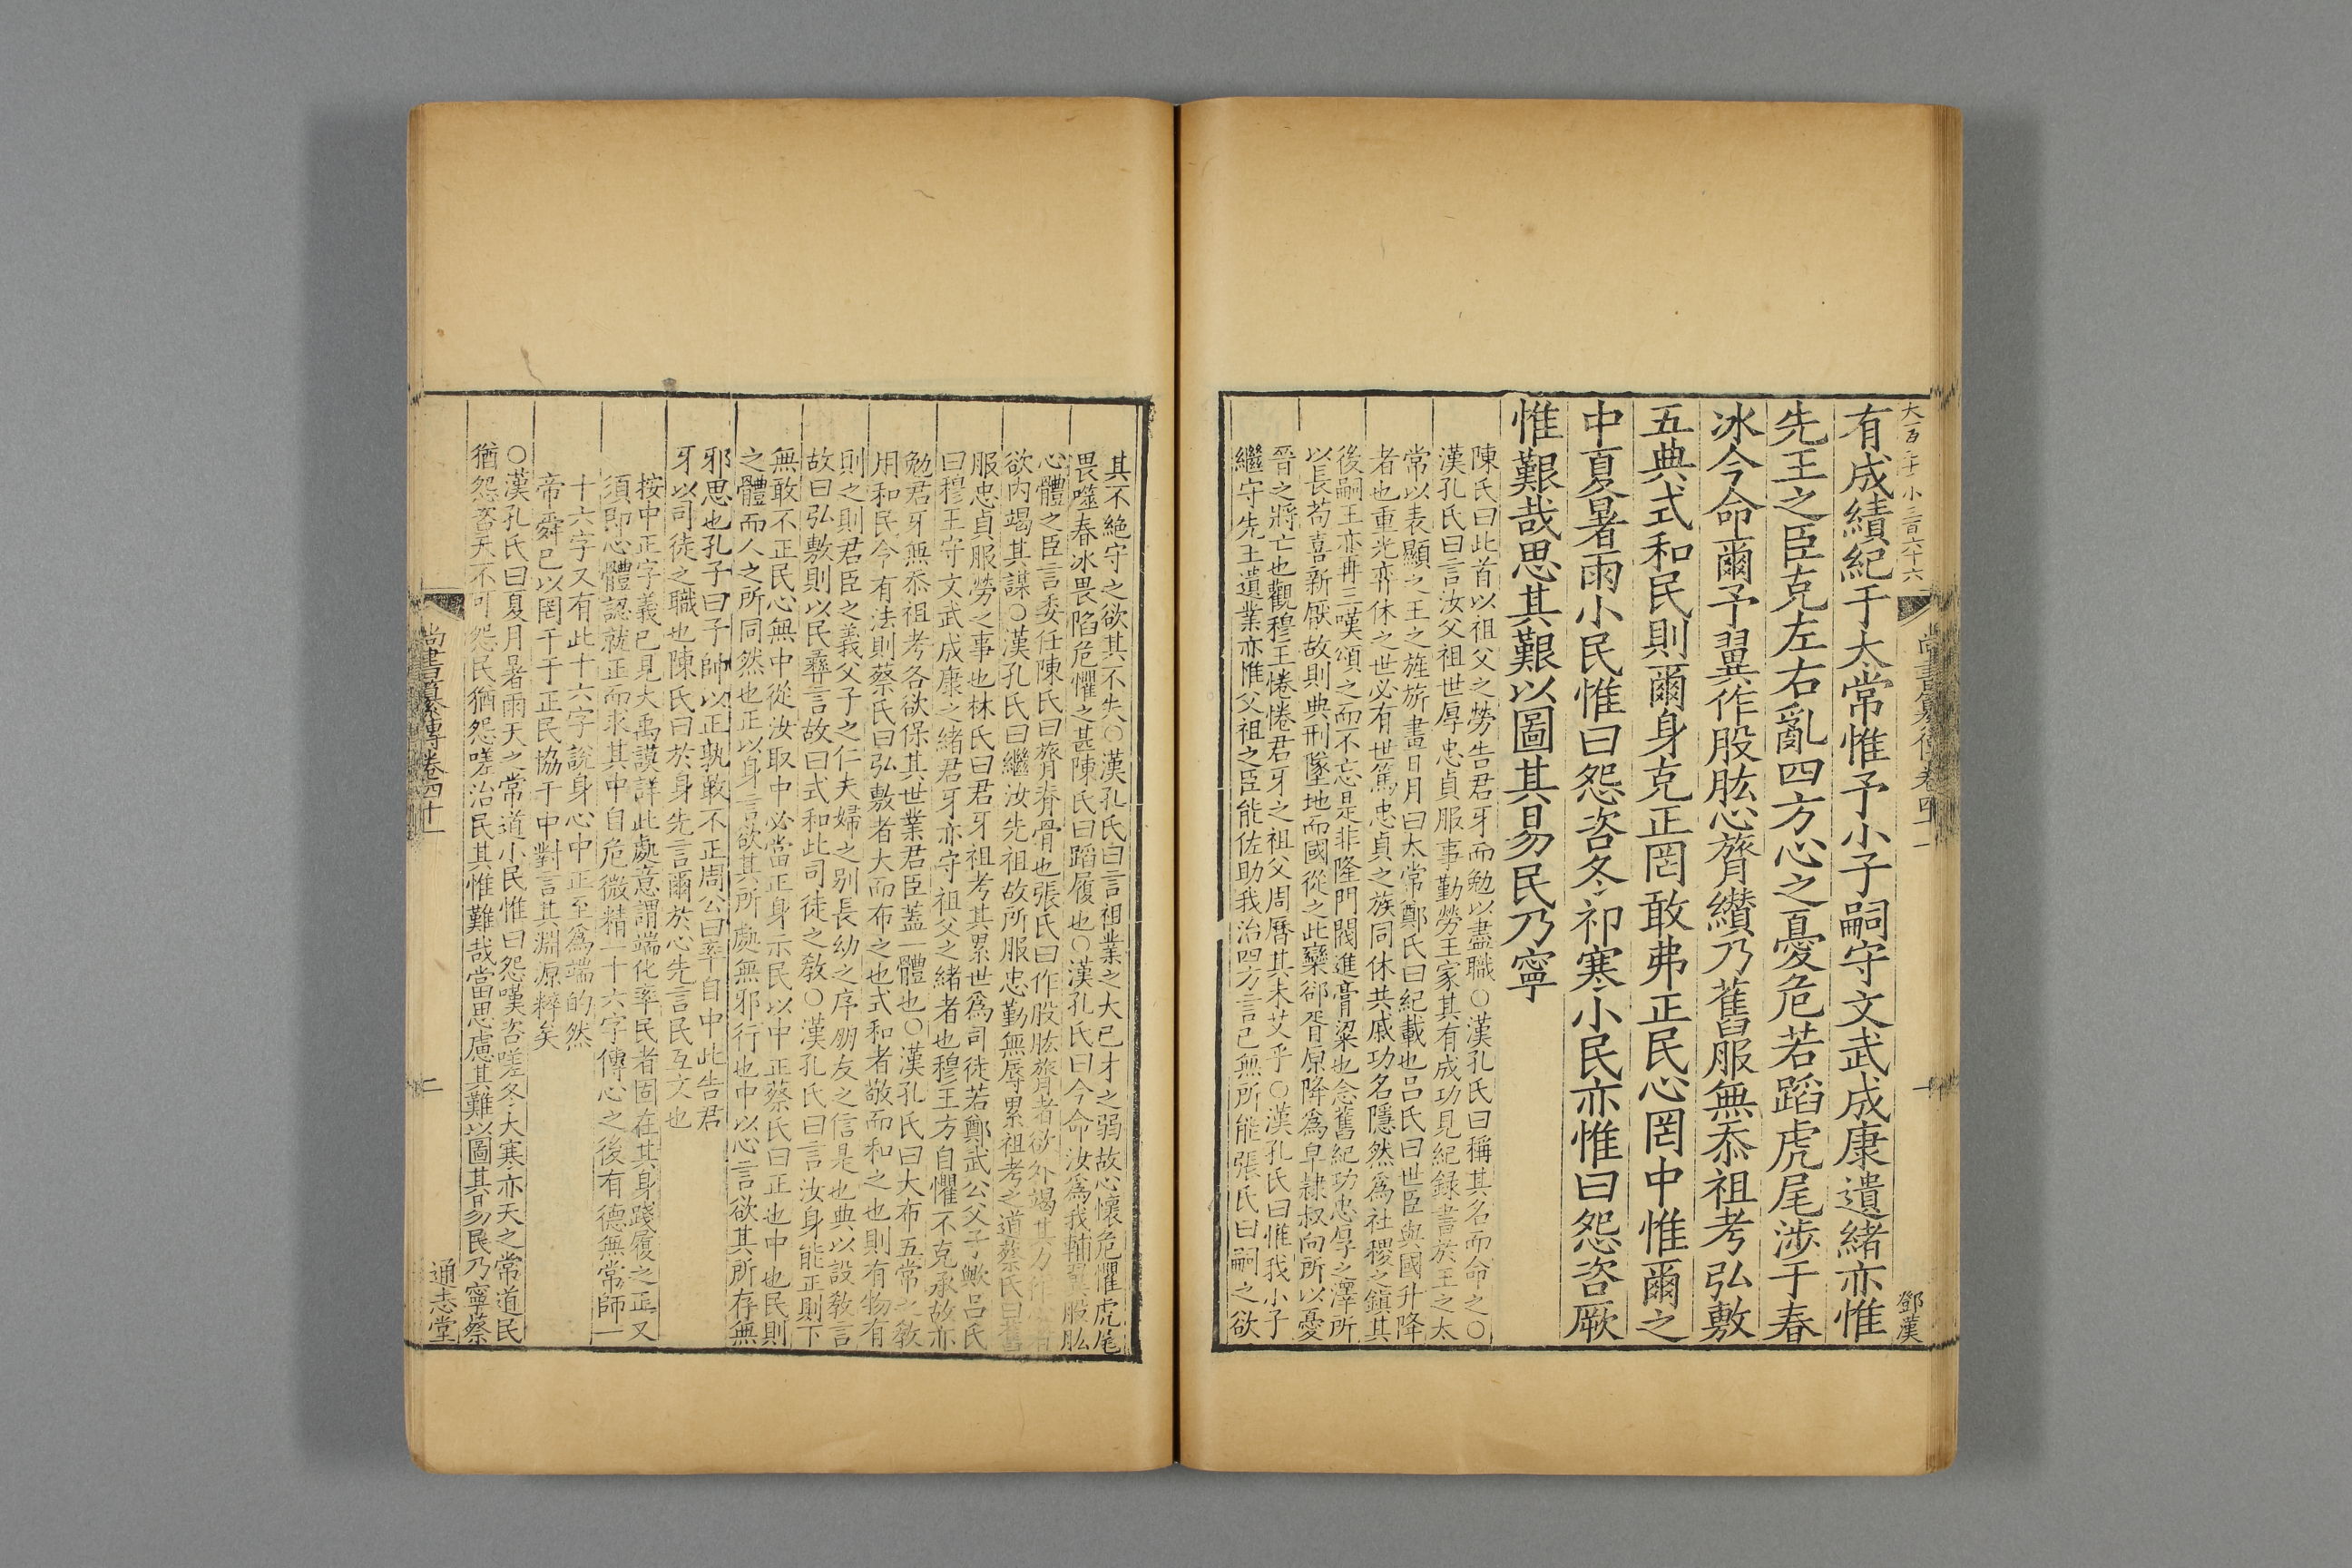 大百二十 小三百六十六
尚書纂傳卷四十一
一
鄧漢
有成績紀于太常惟予小子嗣守文武成康遺緒亦惟
先王之臣克左右亂四方心之憂危若蹈虎尾涉于春
冰今命爾予翼作股肱心膂纘乃舊服無忝祖考弘敷
五典式和民則爾身克正罔敢弗正民心罔中惟爾之
中夏暑雨小民惟曰怨咨冬祁寒小民亦惟曰怨咨厥
惟艱哉思其艱以圖其易民乃寧
陳氏曰此首以祖父之勞告君牙而勉以盡職○漢孔氏曰稱其名而命之○
漢孔氏曰言汝父祖世厚忠貞服事勤勞王家其有成功見紀錄書於王之太
常以表顯之王之旌旂畫日月曰太常鄭氏曰紀載也呂氏曰世臣與國升降
者也重光弈休之世必有世篤忠貞之族同休共戚功名隱然為社稷之鎮其
後嗣王亦再三嘆頌之而不忘是非隆門閥進膏粱也念舊紀功忠厚之澤所
以長苟喜新厭故則典刑墜地而國從之此欒郤胥原降為皁隸叔向所以憂
晉之將亡也觀穆王惓惓君牙之祖父周曆其未艾乎○漢孔氏曰惟我小子
繼守先王遺業亦惟父祖之臣能佐助我治四方言己無所能張氏曰嗣之欲
其不絕守之欲其不失○漢孔氏曰言祖業之大己才之弱故心懷危懼虎尾
畏噬春冰畏陷危懼之甚陳氏曰蹈履也○漢孔氏曰今命汝為我輔翼股肱
心體之臣言委任陳氏曰膂脊骨也張氏曰作股肱膂者欲外竭其力作心者
欲內竭其謀○漢孔氏曰繼汝先祖故所服忠勤無辱累祖考之道蔡氏曰舊
服忠貞服勞之事也林氏曰君牙祖考其累世為司徒若鄭武公父子歟呂氏
曰穆王守文武成康之緒君牙亦守祖父之緒者也穆王方自懼不克承故亦
勉君牙無忝祖考各欲保其世業君臣蓋一體也○漢孔氏曰大布五常之敎
用和民令有法則蔡氏曰弘敷者大而布之也式和者敬而和之也則有物有
則之則君臣之義父子之仁夫婦之别長幼之序朋友之信是也典以設敎言
故曰弘敷則以民彝言故曰式和此司徒之敎○漢孔氏曰言汝身能正則下
無敢不正民心無中從汝取中必當正身示民以中正蔡氏曰正也中也民則
之體而人之所同然也正以身言欲其所處無邪行也中以心言欲其所存無
邪思也孔子曰子帥以正孰敢不正周公曰率自中此告君
牙以司徒之職也陳氏曰於身先言爾於心先言民互文也
按中正字義已見大禹謨詳此處意謂端化率民者固在其身踐履之正又
須即心體認就正而求其中自危微精一十六字傳心之後有德無常師一
十六字又有此十六字說身心中正至為端的然
帝舜已以罔干于正民協于中對言其淵源粹矣
○漢孔氏曰夏月暑雨天之常道小民惟曰怨嘆咨嗟冬大寒亦天之常道民
猶怨咨天不可怨民猶怨嗟治民其惟難哉當思慮其難以圖其易民乃寧蔡
尚書纂傳卷四十一
二
通志堂